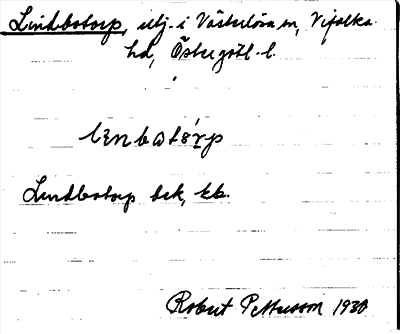 Lindbotorp, utj. i Västerlösa sn, Vifolka
hd, Östergötl. l.
lɛnbɷtɷ́rp
Lindbotorp bek, kb.
Robert Pettersson 1930